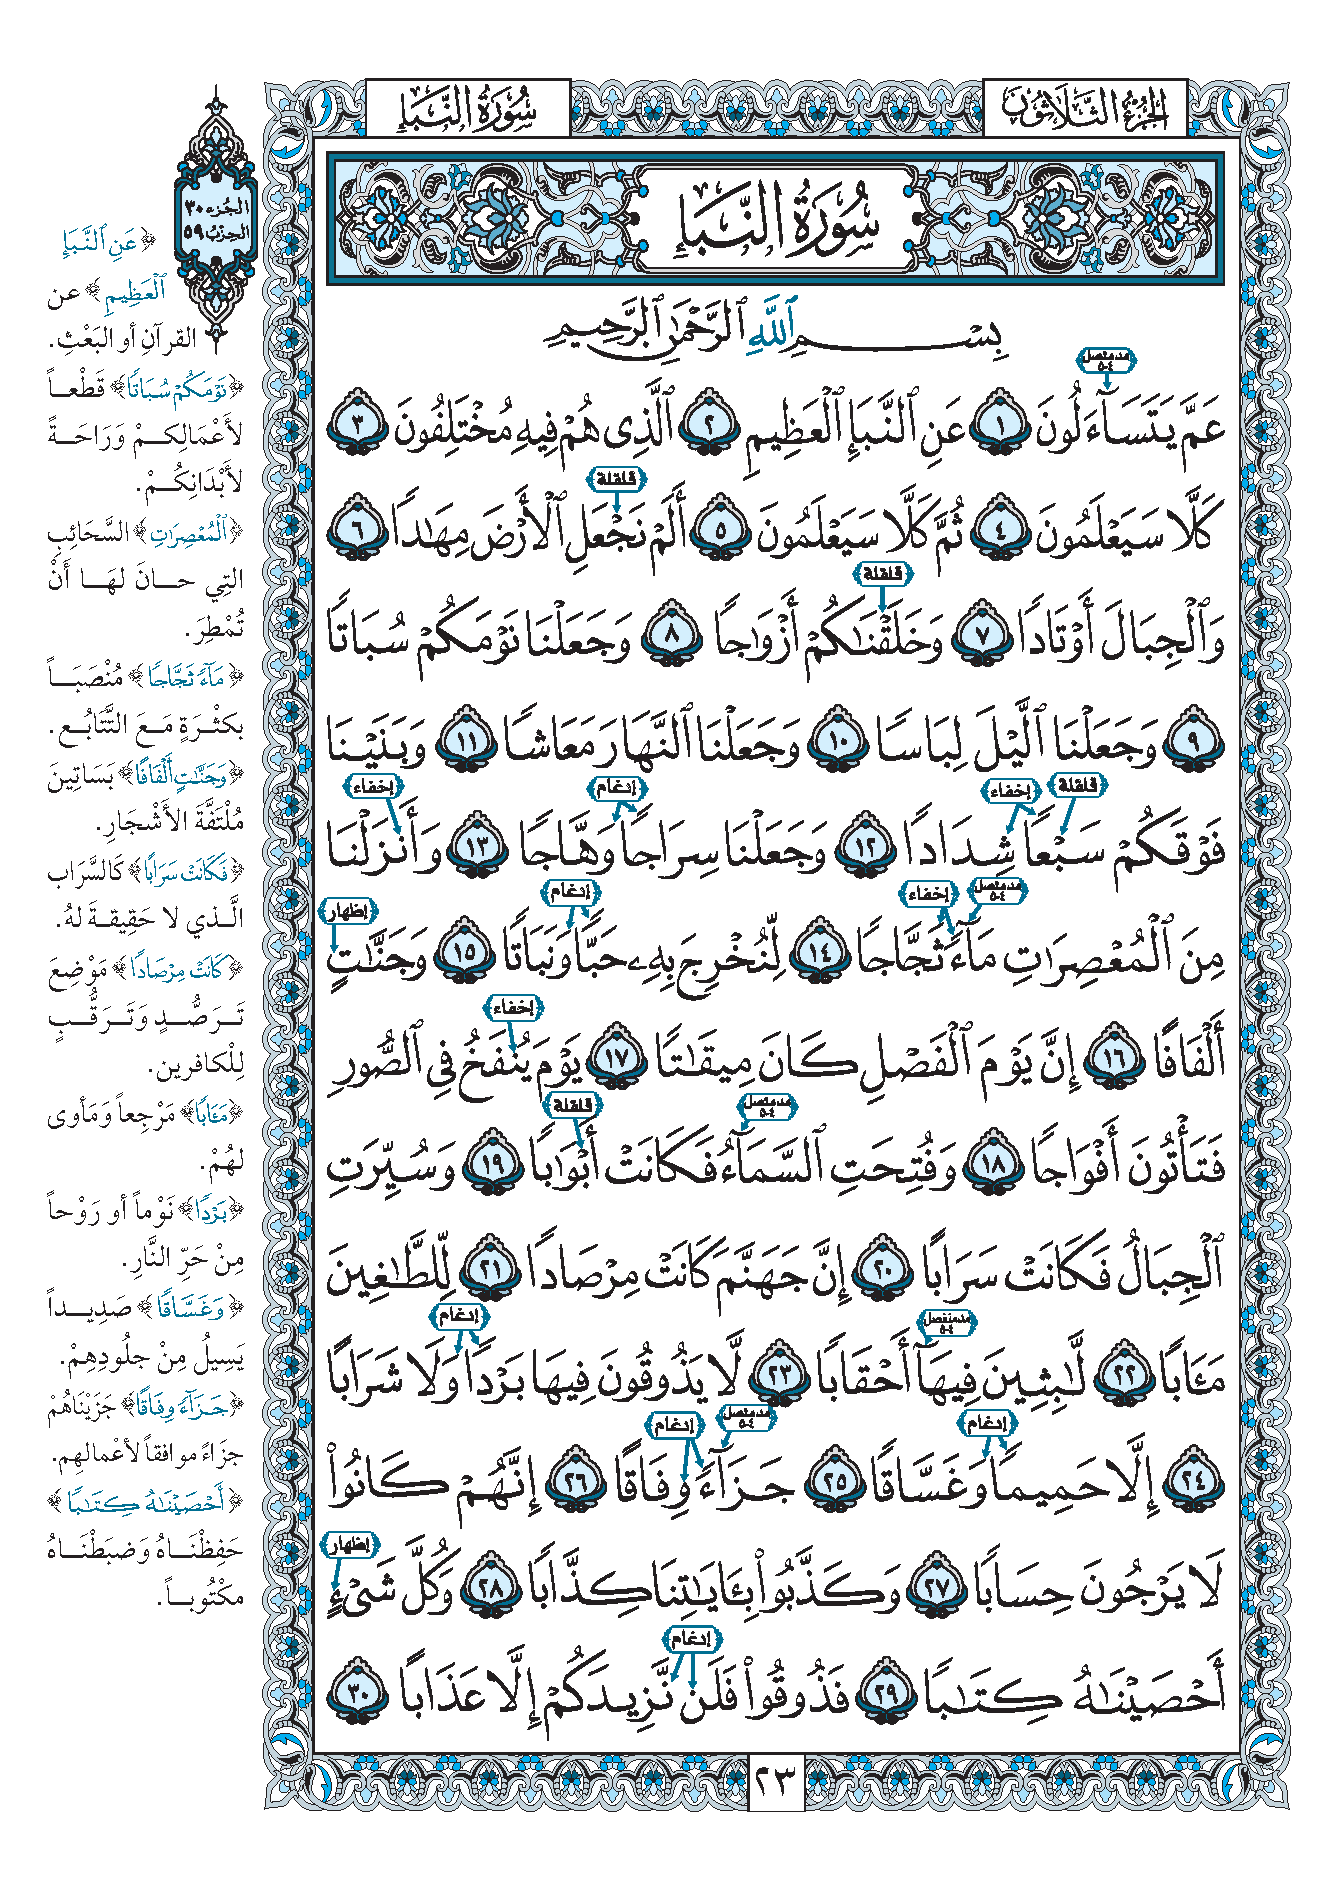 الجُزْءُ الثَّلَاثُونَ
سُورَةُ النَّبَإِ
سُورَةُ النَّبَإِ
بِسْمِ ٱللَّهِ ٱلرَّحْمَٰنِ ٱلرَّحِيمِ
مد متصل ٤-٥
عَمَّ يَتَسَآءَلُونَ ١ عَنِ ٱلنَّبَإِ ٱلْعَظِيمِ ٢ ٱلَّذِى هُمْ فِيهِ مُخْتَلِفُونَ ٣
قلقلة
كَلَّا سَيَعْلَمُونَ ٤ ثُمَّ كَلَّا سَيَعْلَمُونَ ٥ أَلَمْ نَجْعَلِ ٱلْأَرْضَ مِهَٰدًا ٦
قلقلة
وَٱلْجِبَالَ أَوْتَادًا ٧ وَخَلَقْنَٰكُمْ أَزْوَٰجًا ٨ وَجَعَلْنَا نَوْمَكُمْ سُبَاتًا
٩ وَجَعَلْنَا ٱلَّيْلَ لِبَاسًا ١٠ وَجَعَلْنَا ٱلنَّهَارَ مَعَاشًا ١١ وَبَنَيْنَا
قلقلة إخفاء إدغام إخفاء
فَوْقَكُمْ سَبْعًا شِدَادًا ١٢ وَجَعَلْنَا سِرَاجًا وَهَّاجًا ١٣ وَأَنزَلْنَا
مد متصل ٤-٥ إخفاء إدغام إظهار
مِنَ ٱلْمُعْصِرَٰتِ مَآءً ثَجَّاجًا ١٤ لِّنُخْرِجَ بِهِۦ حَبًّا وَنَبَاتًا ١٥ وَجَنَّٰتٍ
إخفاء
أَلْفَافًا ١٦ إِنَّ يَوْمَ ٱلْفَصْلِ كَانَ مِيقَٰتًا ١٧ يَوْمَ يُنفَخُ فِى ٱلصُّورِ
مد متصل ٤-٥ قلقلة
فَتَأْتُونَ أَفْوَاجًا ١٨ وَفُتِحَتِ ٱلسَّمَآءُ فَكَانَتْ أَبْوَٰبًا ١٩ وَسُيِّرَتِ
ٱلْجِبَالُ فَكَانَتْ سَرَابًا ٢٠ إِنَّ جَهَنَّمَ كَانَتْ مِرْصَادًا ٢١ لِّلطَّٰغِينَ
مد منفصل ٤-٥ إدغام
مَـَٔابًا ٢٢ لَّٰبِثِينَ فِيهَآ أَحْقَابًا ٢٣ لَّا يَذُوقُونَ فِيهَا بَرْدًا وَلَا شَرَابًا
إدغام مد متصل ٤-٥ إدغام
٢٤ إِلَّا حَمِيمًا وَغَسَّاقًا ٢٥ جَزَآءً وِفَاقًا ٢٦ إِنَّهُمْ كَانُوا۟
إظهار
لَا يَرْجُونَ حِسَابًا ٢٧ وَكَذَّبُوا۟ بِـَٔايَٰتِنَا كِذَّابًا ٢٨ وَكُلَّ شَىْءٍ
إدغام
أَحْصَيْنَٰهُ كِتَٰبًا ٢٩ فَذُوقُوا۟ فَلَن نَّزِيدَكُمْ إِلَّا عَذَابًا ٣٠
٢٣
الجُزء ٣٠
الحِزْبُ ٥٩
﴿عَنِ ٱلنَّبَإِ
ٱلْعَظِيمِ﴾ عن
القرآنِ أو البَعْثِ.
﴿نَوْمَكُمْ سُبَاتًا﴾ قَطْعاً
لأَعْمَالِكُمْ وَرَاحَةً
لأَبْدَانِكُمْ.
﴿ٱلْمُعْصِرَٰتِ﴾ السَّحَائِبِ
التِي حانَ لهَا أَنْ
تُمْطِرَ.
﴿مَآءً ثَجَّاجًا﴾ مُنْصَبَاً
بكثْرَةٍ مَعَ التَّتَابُعِ.
﴿وَجَنَّٰتٍ أَلْفَافًا﴾ بَسَاتِينَ
مُلْتَفَّةَ الأشْجَارِ.
﴿فَكَانَتْ سَرَابًا﴾ كَالسَّرَابِ
الَّذي لا حَقِيقَةَ لهُ.
﴿كَانَتْ مِرْصَادًا﴾ مَوْضِعَ
تَرَصُّدٍ وَتَرَقُّبٍ
لِلْكافرين.
﴿مَـَٔابًا﴾ مَرْجِعاً وَمَأوى
لهُمْ.
﴿بَرْدًا﴾ نَوْماً أو رَوْحاً
مِنْ حَرِّ النَّارِ.
﴿وَغَسَّاقًا﴾ صَدِيداً
يَسِيلُ مِنْ جلُودِهِمْ.
﴿جَزَآءً وِفَاقًا﴾ جَزَيْنَاهُمْ
جزَاءً موافقاً لأعْمالِهِم.
﴿أَحْصَيْنَٰهُ كِتَٰبًا﴾
حَفِظْنَاهُ وَضبَطْنَاهُ
مكْتُوباً.